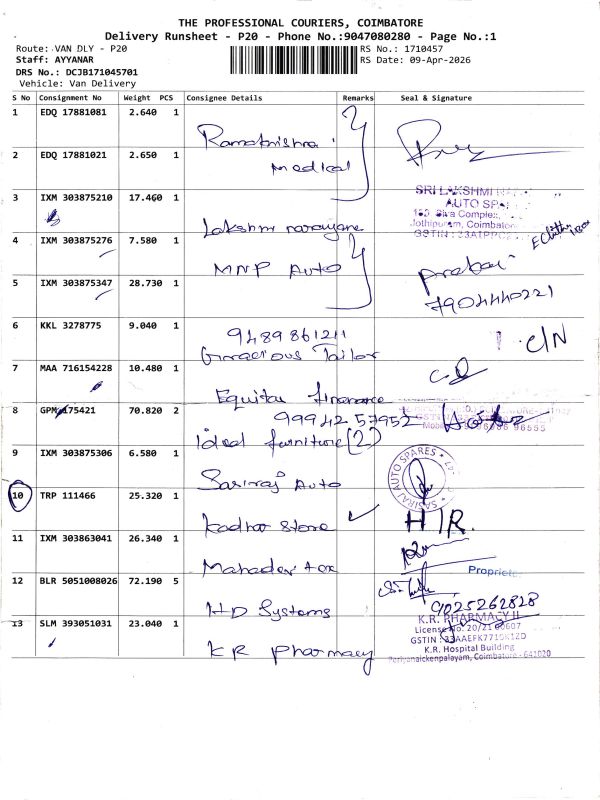 THE PROFESSIONAL COURIERS, COIMBATORE
Delivery Runsheet - P20 - Phone No.:9047080280 - Page No.:1
Route: VAN DLY - P20 RS No.: 1710457
Staff: AYYANAR RS Date: 09-Apr-2026
DRS No.: DCJB171045701
Vehicle: Van Delivery
S No Consignment No Weight PCS Consignee Details Remarks Seal & Signature
1 EDQ 17881081 2.640 1
Ramakrishna
2 EDQ 17881021 2.650 1
Medical
3 IXM 303875210 17.460 1
SRI LAKSHMI
AUTO SPA
Jothipuram, Coimbator
Lakshmi narayane
4 IXM 303875276 7.580 1
MNP Auto
5 IXM 303875347 28.730 1
7904440221
6 KKL 3278775 9.040 1
9489861211
C/N
Gracious Tailor
7 MAA 716154228 10.480 1
Equitas finance
8 GPM 175421 70.820 2
99942 57952
ideal furniture (2)
9 IXM 303875306 6.580 1
SASIRAJ AUTO SPARES
Sasiraj Auto
10 TRP 111466 25.320 1
Kadhar Store
11 IXM 303863041 26.340 1
Mahadev tex
Proprieto
12 BLR 5051008026 72.190 5
HD Systems
9025262828
13 SLM 393051031 23.040 1
K.R. PHARMACY II
K.R. Hospital Building
Periyanaickenpalayam, Coimbatore - 641020
KR Pharmacy